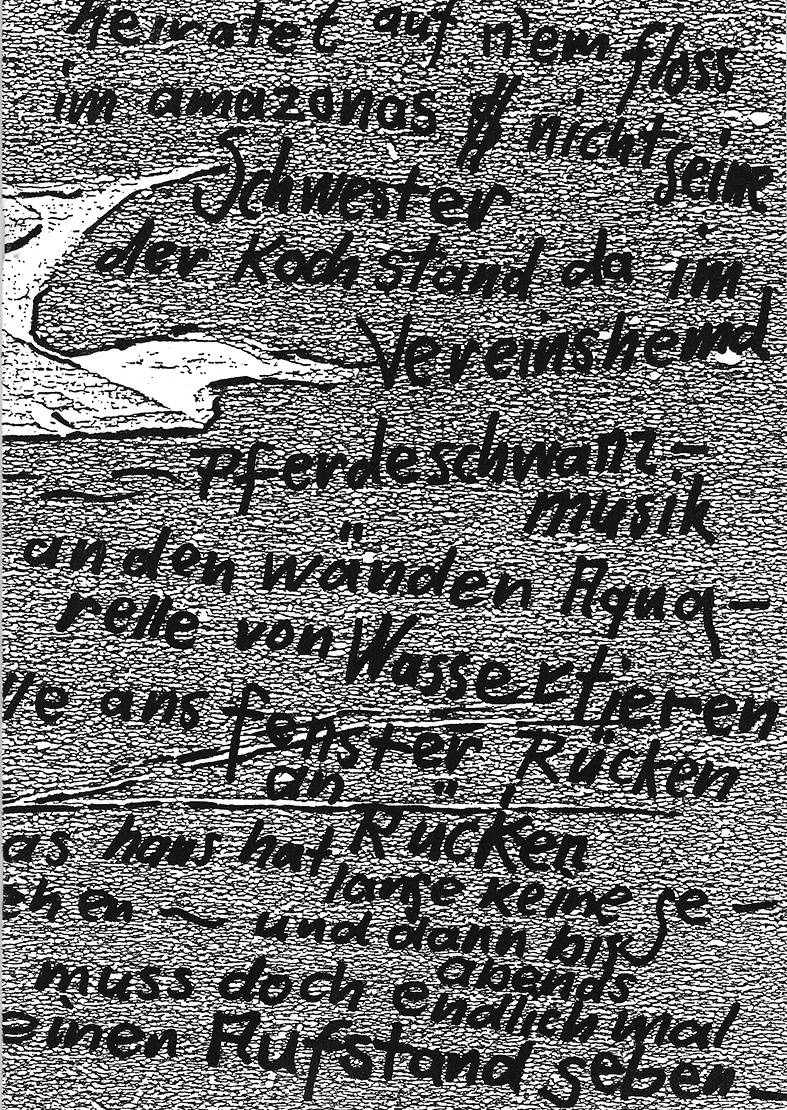 heiratet auf n'em floss
im amazonas nicht seine
Schwester
der Koch stand da im
Vereinshemd
Pferdeschwanz-
musik
an den wänden Aqua-
relle von Wassertieren
ans fenster Rücken
an Rücken
as haus hat
lange keine se-
hen ~ und dann bis
abends
muss doch endlich mal
einen Aufstand geben